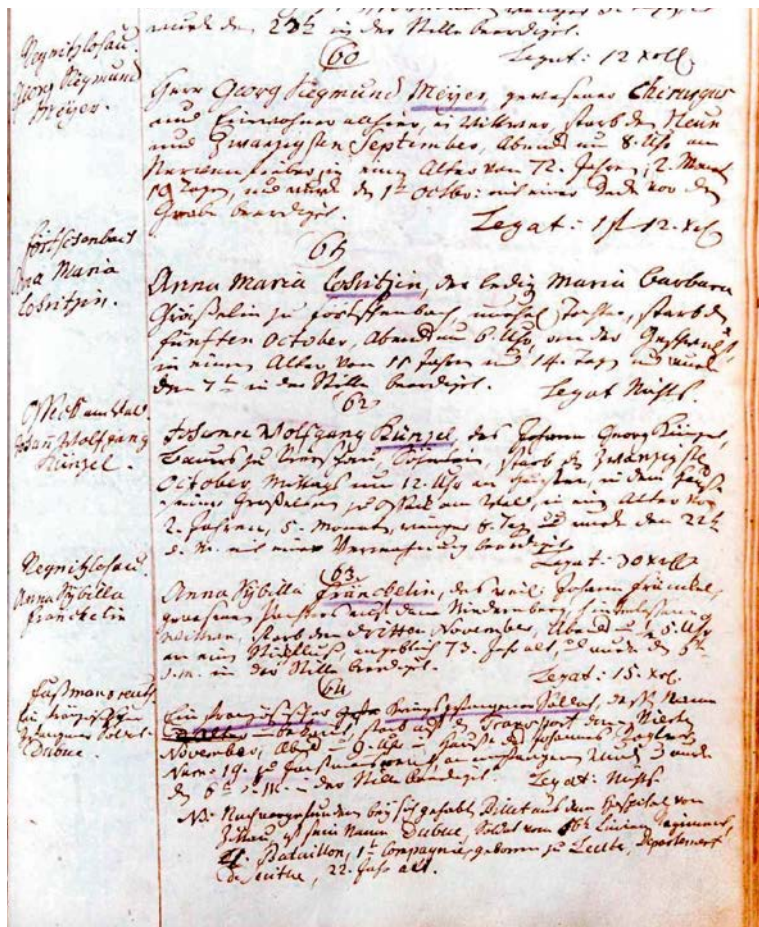 wurde den 23t in der Stille beerdiget.
60
Legat: 12 xell
Regnitzlosau.
Georg Siegmund
Meyer.
Herr Georg Siegmund Meyer, gewesener Chirurgus
und Einwohner allhier, ein Wittwer, starb den Neun
und Zwanzigsten September, Abends um 8. Uhr am
Nervenfieber in einem Alter von 72. Jahren, 2. Monat
19 Tagen, und wurde den 1t Octbr: mit einer Rede vor dem
Grabe beerdiget.
Legat: 1 fl 12. xell
61
Förtschenbach
Anna Maria
Anna Maria der ledig Maria Barbara
zu Förtschenbach Tochter, starb den
fünften October, Abends um 6. Uhr, an der Geschwulst,
in einem Alter von 11 Jahren und 14. Tagen und wurde
den 7t in der Stille beerdiget.
Legat Nichts.
62
Osseck am Wald
Johann Wolfgang
Künzel.
Johann Wolfgang Künzel, des Johann Georg Künzel,
Bauers zu Söhnlein, starb den Zwanzigsten
October, Mittags um 12. Uhr an in dem Hause
seiner Großeltern zu Osseck am Wald, in einem Alter von
2. Jahren, 5. Monat, weniger 6. Tag und wurde den 22t
d. M. mit einer Vermahnung beerdiget.
Legat: 30 xell
63.
Regnitzlosau.
Anna Sybilla
Fränckelin
Anna Sybilla Fränckelin, des weil. Johann Fränckel,
gewesenen auf dem Niedernberg, hinterlassene
Wittwe, starb den dritten November, Abends um 5. Uhr
an einem Stickfluß, angeblich 73. Jahr alt, und wurde den 5t
d. M. in der Stille beerdiget.
Legat: 15. xel.
64
Faßmannsreuth
Ein französischer
Gefangener Soldat
Dubue.
Ein französischer Kriegsgefangener Soldat, dessen Namen
und Alter unbekannt, starb auf dem Transport den Vierten
November, Abends um 9. Uhr im Hause des Johannes
Num: 19. zu Faßmannsreuth und wurde
den 6t d. M. in der Stille beerdiget. Legat: Nichts.
NB: Nach vorgefunden bey sich gehabten Billet aus dem Hospital von
Zittau, ist sein Name Dubue, Soldat vom 56t Linien Regiment,
Bataillon, 1t Compagnie, geboren zu Departement
22. Jahr alt.